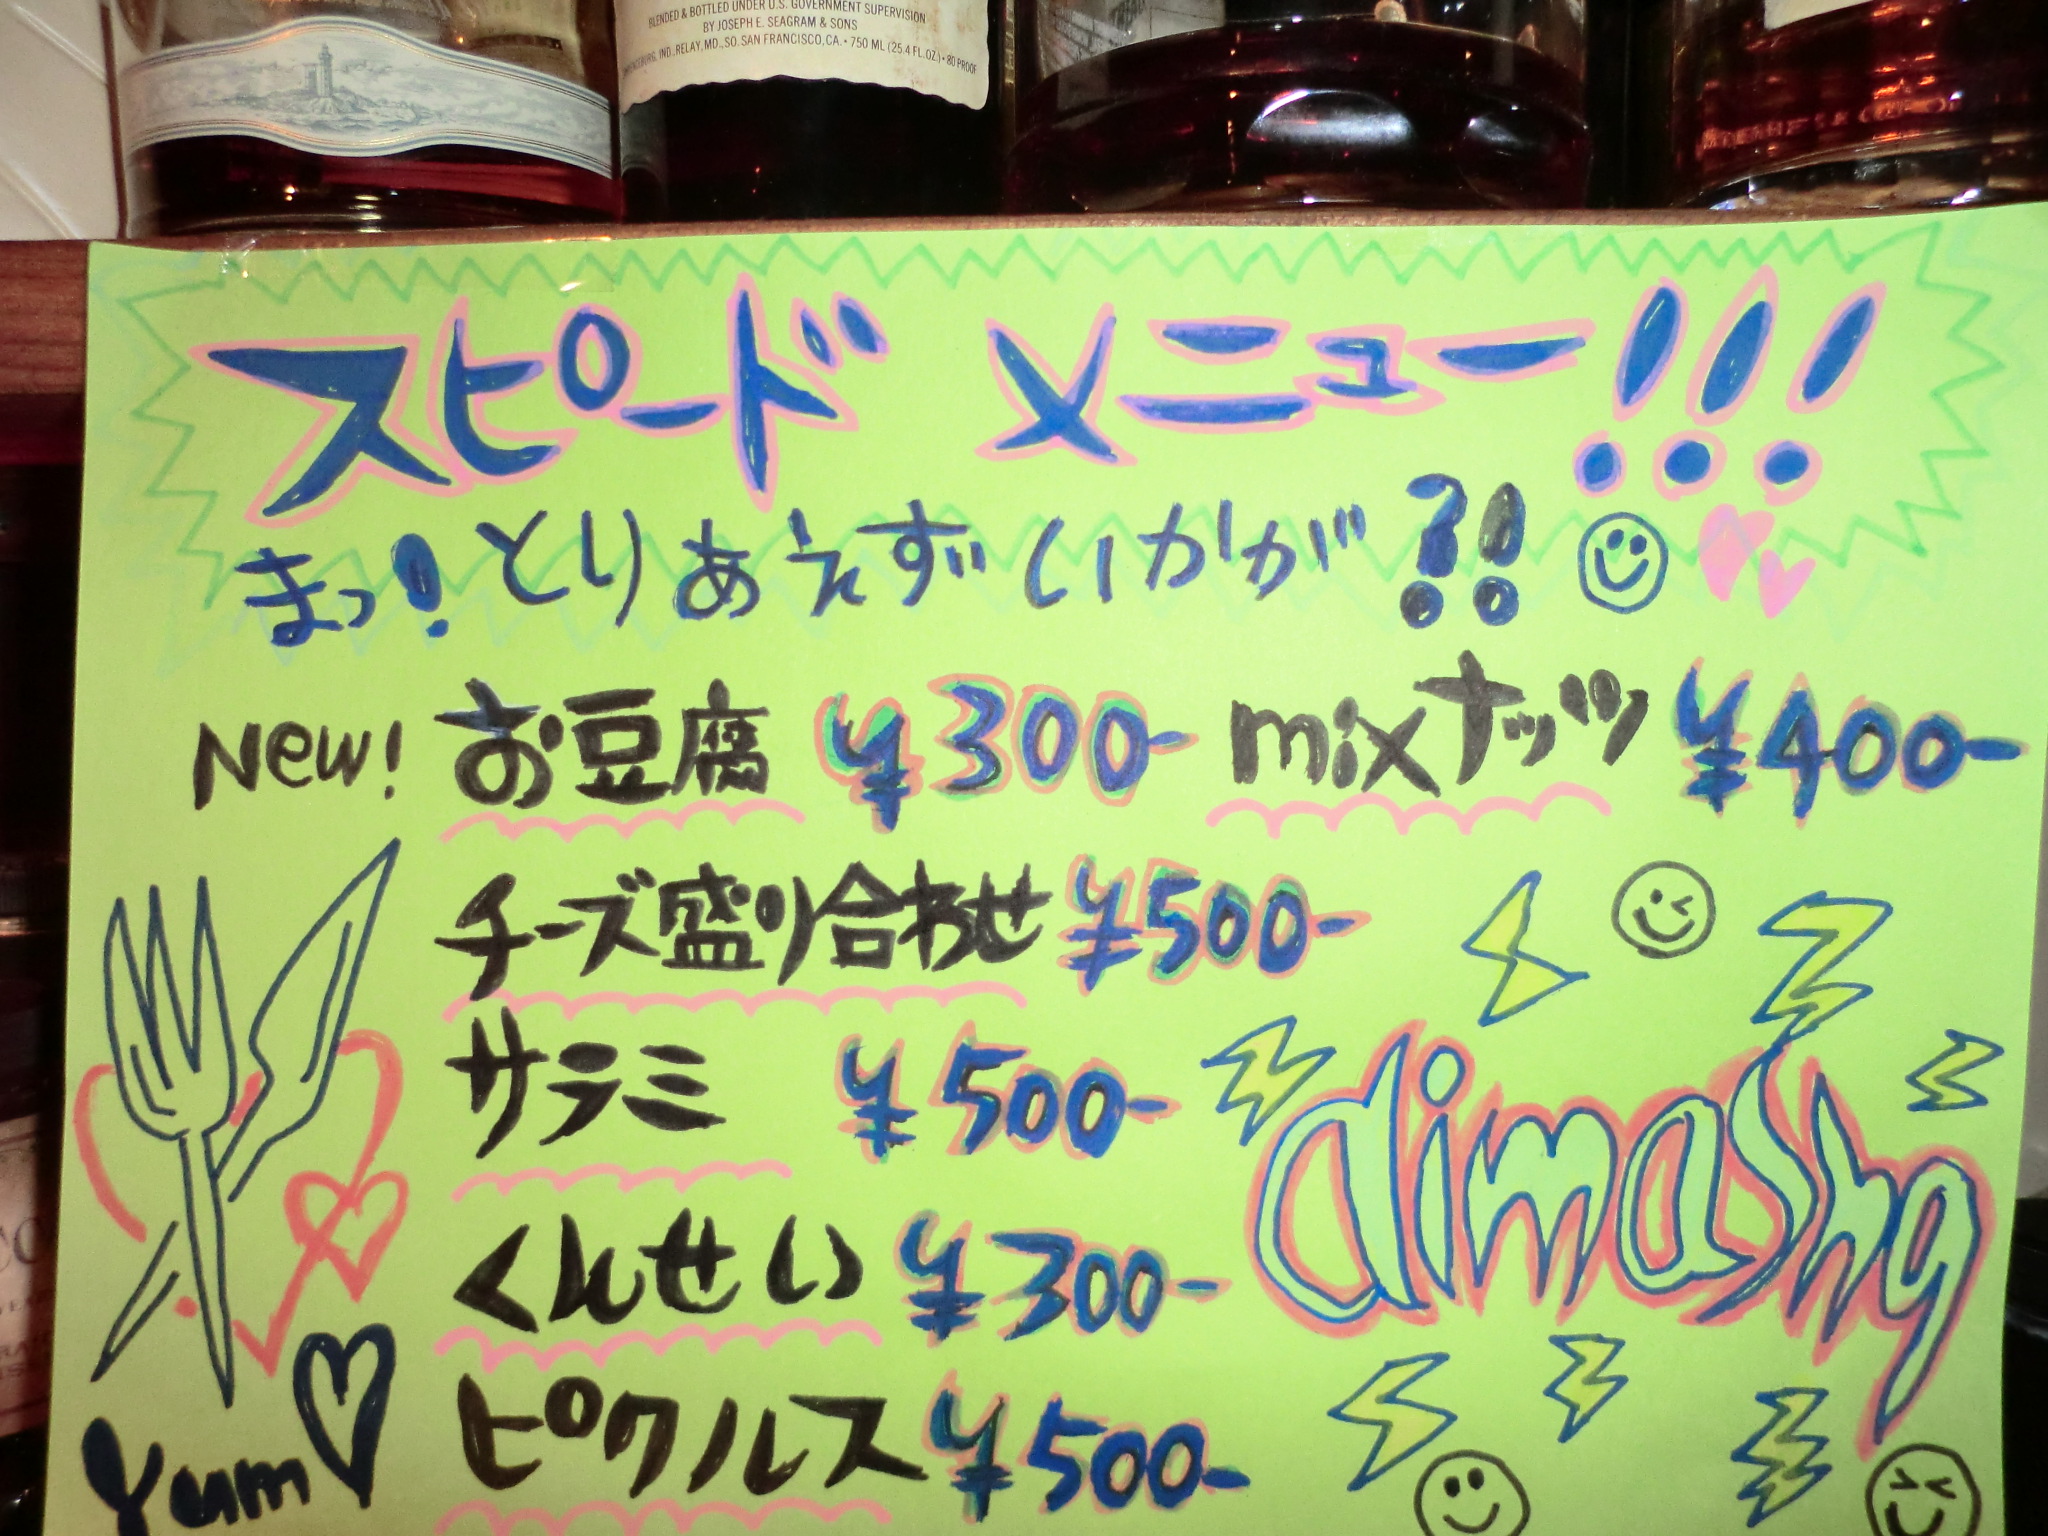 BLENDED & BOTTLED UNDER U.S. GOVERNMENT SUPERVISION
BY JOSEPH E. SEAGRAM & SONS
IND., RELAY, MD., SO. SAN FRANCISCO, CA. • 750 ML (25.4 FL. OZ.) • 80 PROOF
スピード メニュー!!!
まっ!とりあえずいかが?!
New! お豆腐 ¥300- mixナッツ ¥400-
チーズ盛り合わせ ¥500-
サラミ ¥500-
くんせい ¥300-
ピクルス ¥500-
dimashq
Yum